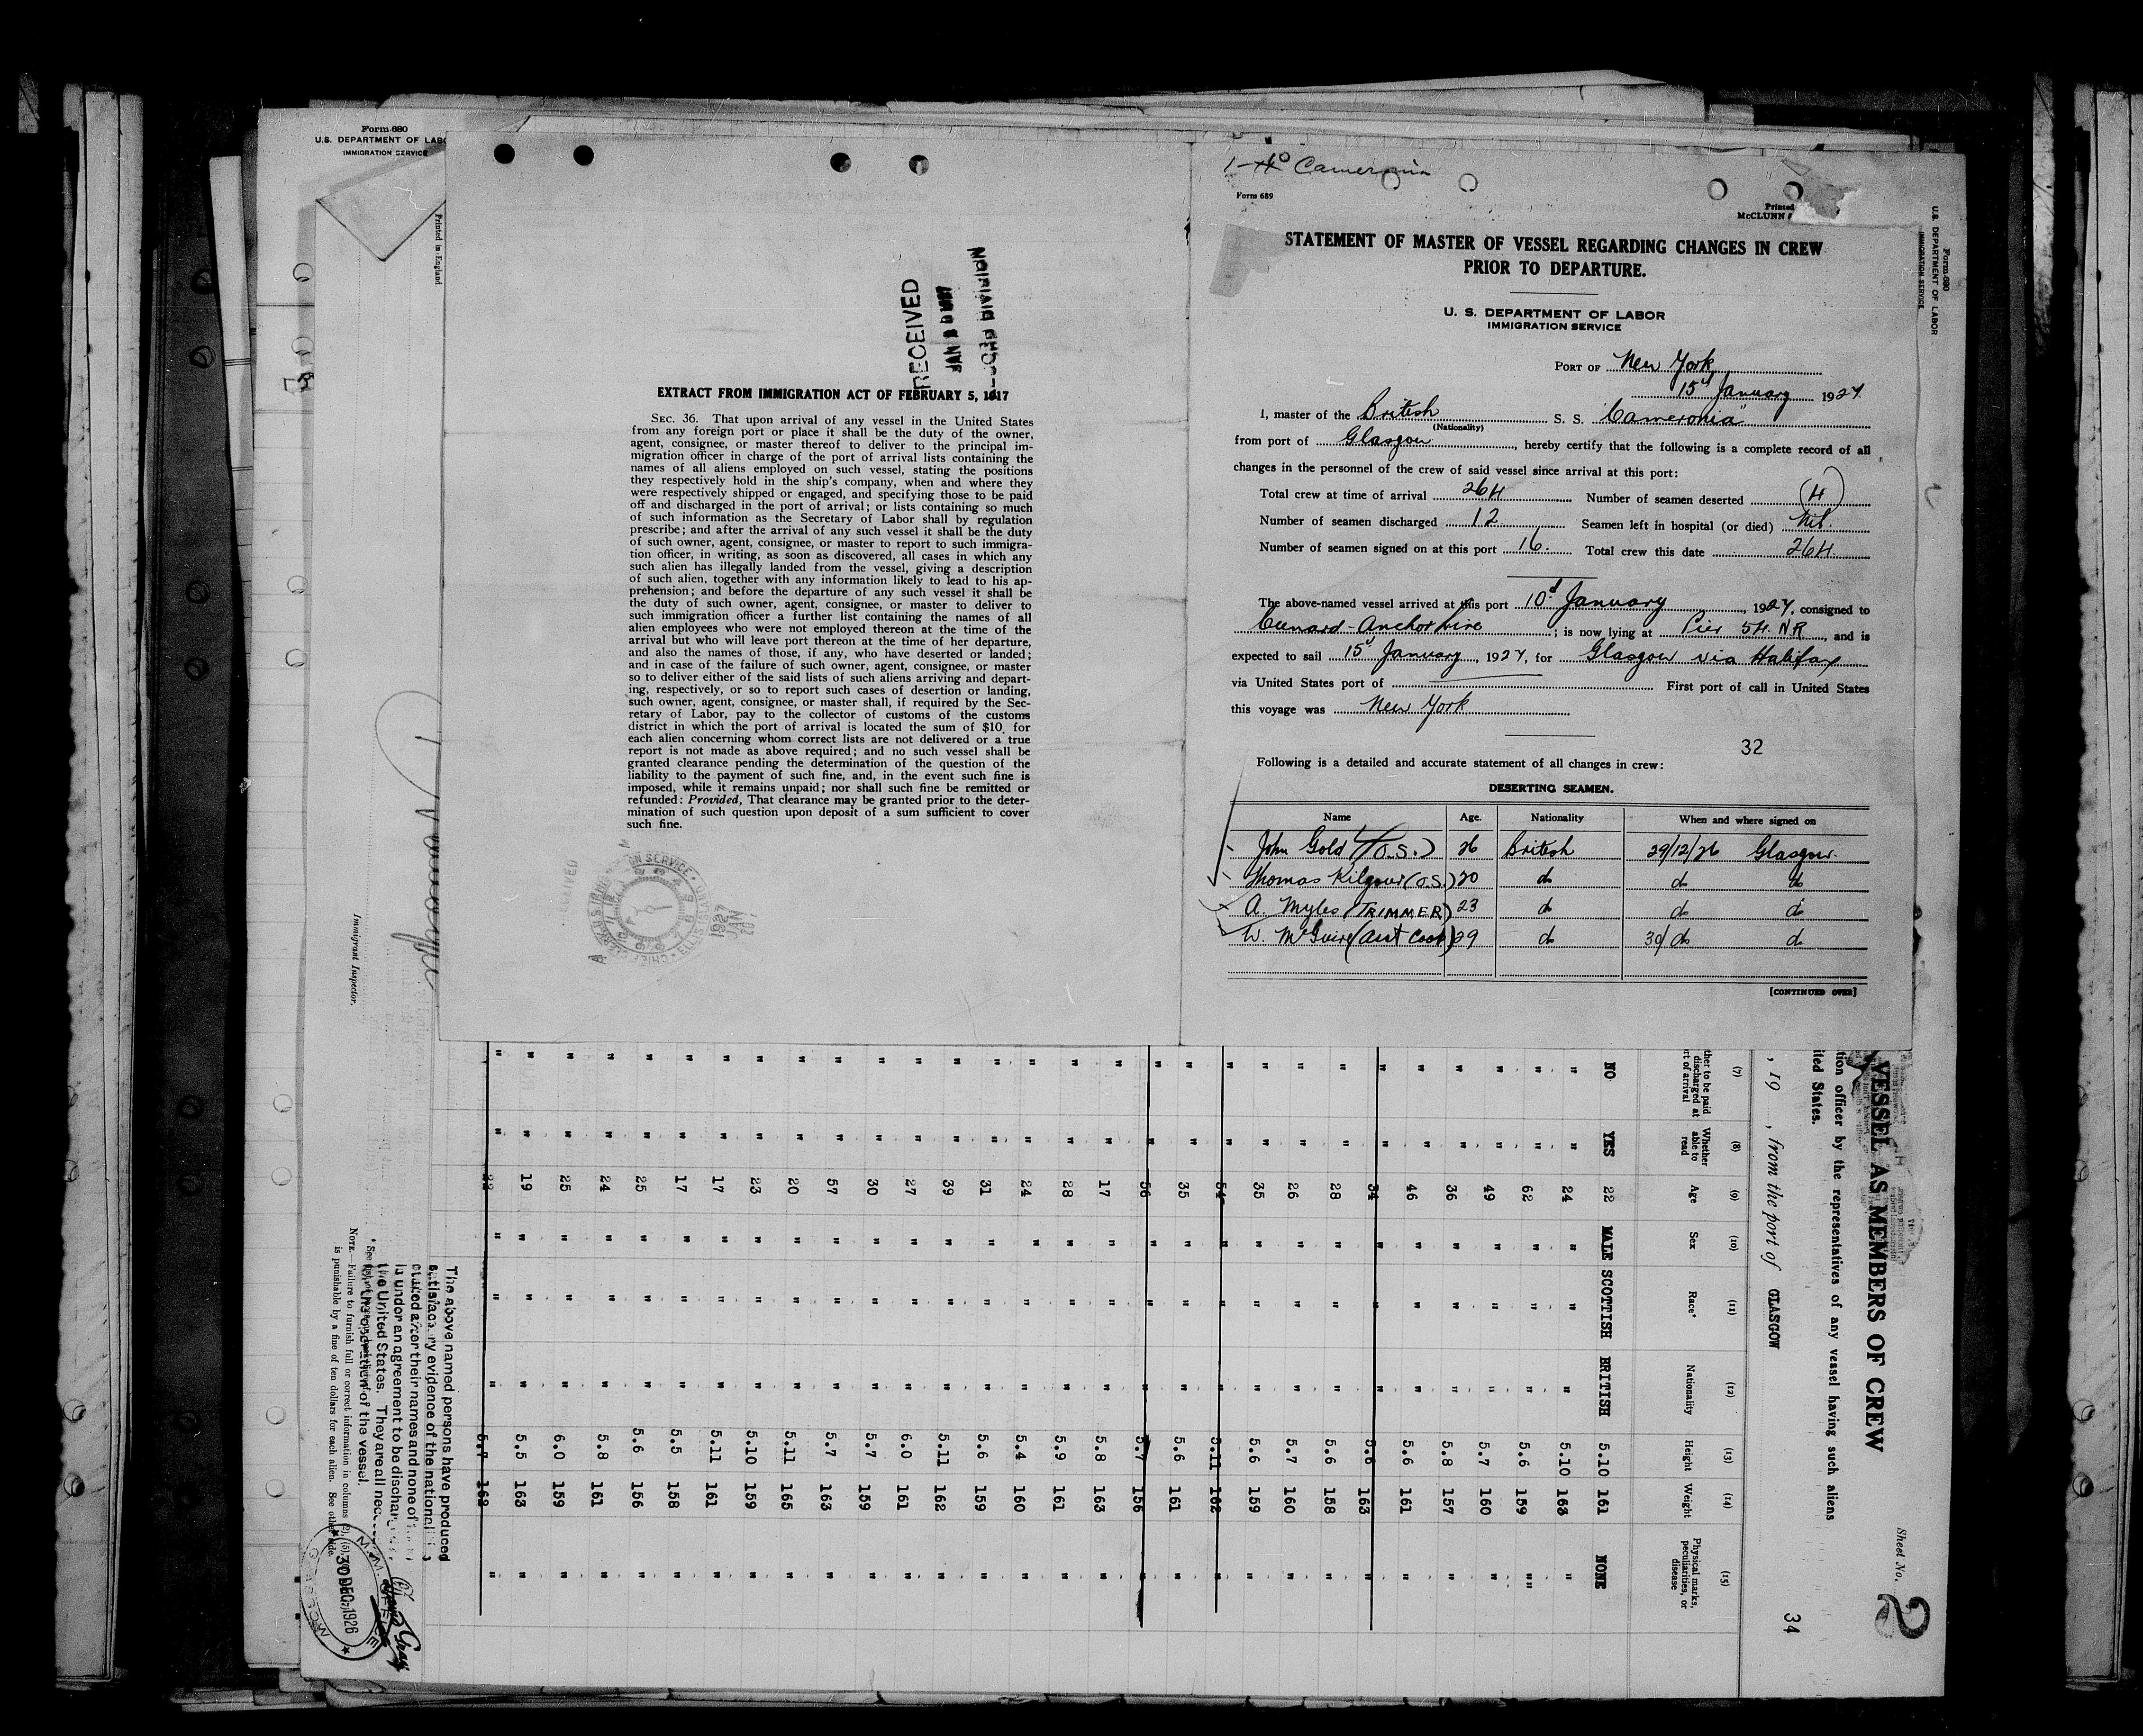 Form 680
U.S. DEPARTMENT OF LABO
IMMIGRATION SERVICE
Printed in England
Immigrant Inspector.
RECEIVED
EXTRACT FROM IMMIGRATION ACT OF FEBRUARY 5, 1917
SEC. 36. That upon arrival of any vessel in the United States
from any foreign port or place it shall be the duty of the owner,
agent, consignee, or master thereof to deliver to the principal im-
migration officer in charge of the port of arrival lists containing the
names of all aliens employed on such vessel, stating the positions
they respectively hold in the ship's company, when and where they
were respectively shipped or engaged, and specifying those to be paid
off and discharged in the port of arrival; or lists containing so much
of such information as the Secretary of Labor shall by regulation
prescribe; and after the arrival of any such vessel it shall be the duty
of such owner, agent, consignee, or master to report to such immigra-
tion officer, in writing, as soon as discovered, all cases in which any
such alien has illegally landed from the vessel, giving a description
of such alien, together with any information likely to lead to his ap-
prehension; and before the departure of any such vessel it shall be
the duty of such owner, agent, consignee, or master to deliver to
such immigration officer a further list containing the names of all
alien employees who were not employed thereon at the time of the
arrival but who will leave port thereon at the time of her departure,
and also the names of those, if any, who have deserted or landed;
and in case of the failure of such owner, agent, consignee, or master
so to deliver either of the said lists of such aliens arriving and depart-
ing, respectively, or so to report such cases of desertion or landing,
such owner, agent, consignee, or master shall, if required by the Sec-
retary of Labor, pay to the collector of customs of the customs
district in which the port of arrival is located the sum of $10. for
each alien concerning whom correct lists are not delivered or a true
report is not made as above required; and no such vessel shall be
granted clearance pending the determination of the question of the
liability to the payment of such fine, and, in the event such fine is
imposed, while it remains unpaid; nor shall such fine be remitted or
refunded: Provided, That clearance may be granted prior to the deter-
mination of such question upon deposit of a sum sufficient to cover
such fine.
1927
JAN
20
Cameronia
Form 689
Printed
McCLUNN &
STATEMENT OF MASTER OF VESSEL REGARDING CHANGES IN CREW
PRIOR TO DEPARTURE.
U. S. DEPARTMENT OF LABOR
IMMIGRATION SERVICE
PORT OF New York
15th January 1927
I, master of the British S. S. "Cameronia"
(Nationality)
from port of Glasgow, hereby certify that the following is a complete record of all
changes in the personnel of the crew of said vessel since arrival at this port:
Total crew at time of arrival 264 Number of seamen deserted (4)
Number of seamen discharged 12 Seamen left in hospital (or died) Nil.
Number of seamen signed on at this port 16. Total crew this date 264
The above-named vessel arrived at this port 10th January, 1927, consigned to
Cunard-Anchor Line; is now lying at Pier 54. N R, and is
expected to sail 15th January, 1927, for Glasgow via Halifax
via United States port of First port of call in United States
this voyage was New York
32
Following is a detailed and accurate statement of all changes in crew:
DESERTING SEAMEN.
Name Age. Nationality When and where signed on
John Gold (O.S.) 26 British 29/12/26 Glasgow.
Thomas Kilgour (O.S.) 20 do do do
A. Myles (TRIMMER) 23 do do do
W. McGuire (Asst Cook) 29 do 30/ do do
[CONTINUED OVER]
Form 680
U.S. DEPARTMENT OF LABOR
IMMIGRATION SERVICE
VESSEL AS MEMBERS OF CREW
Sheet No. 2
tion officer by the representatives of any vessel having such aliens
ited States.
, 19 , from the port of GLASGOW
34
(7) (8) (9) (10) (11) (12) (13) (14) (15)
ther to be paid discharged at rt of arrival Whether able to read Age Sex Race* Nationality Height Weight Physical marks, peculiarities, or disease
NO YES 22 MALE SCOTTISH BRITISH 5.10 161 NONE
" " 24 " " " 5.10 163 "
" " 62 " " " 5.6 159 "
" " 49 " " " 5.7 160 "
" " 36 " " " 5.8 157 "
" " 46 " " " 5.6 161 "
" " 34 " " " 5.6 163 "
" " 28 " " " 5.6 158 "
" " 26 " " " 5.7 160 "
" " 35 " " " 5.6 159 "
" " 54 " " " 5.11 162 "
" " 35 " " " 5.6 161 "
" " 56 " " " 5.7 156 "
" " 17 " " " 5.8 163 "
" " 28 " " " 5.9 161 "
" " 24 " " " 5.4 160 "
" " 31 " " " 5.6 159 "
" " 39 " " " 5.11 162 "
" " 27 " " " 6.0 161 "
" " 30 " " " 5.7 159 "
" " 57 " " " 5.7 163 "
" " 20 " " " 5.11 165 "
" " 23 " " " 5.10 159 "
" " 17 " " " 5.11 161 "
" " 17 " " " 5.5 158 "
" " 25 " " " 5.6 156 "
" " 24 " " " 5.8 161 "
" " 25 " " " 6.0 159 "
" " 19 " " " 5.5 163 "
" " 22 " " " 5.7 162 "
The above named persons have produced
satisfactory evidence of the nationalities
stated after their names and none of them
is under an agreement to be discharged in
the United States. They are all necessary
for the operation of the vessel.
NOTE.—Failure to furnish full or correct information in columns (2), (5),
is punishable by a fine of ten dollars for each alien. See other side.
M.M. OFFICE
GLASGOW
30 DEC. 1926
Gray